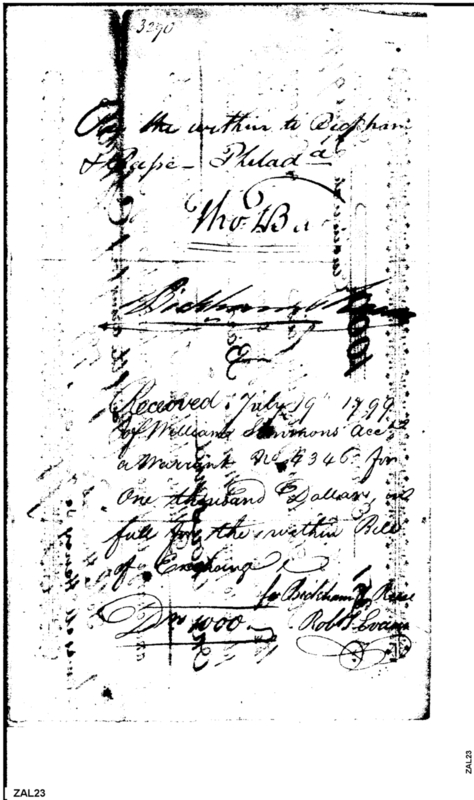 3290
Pay the within to Bickham
& Reese - Philad a
Tho B
Bickham & Reese
1000
Received July 19th 1799
of William Simmons acct
a Warrant No 4346 for
One thousand Dollars in
full for the within Bill
of Exchange
for Bickham & Reese
Robt Evans
ZAL23
ZAL23